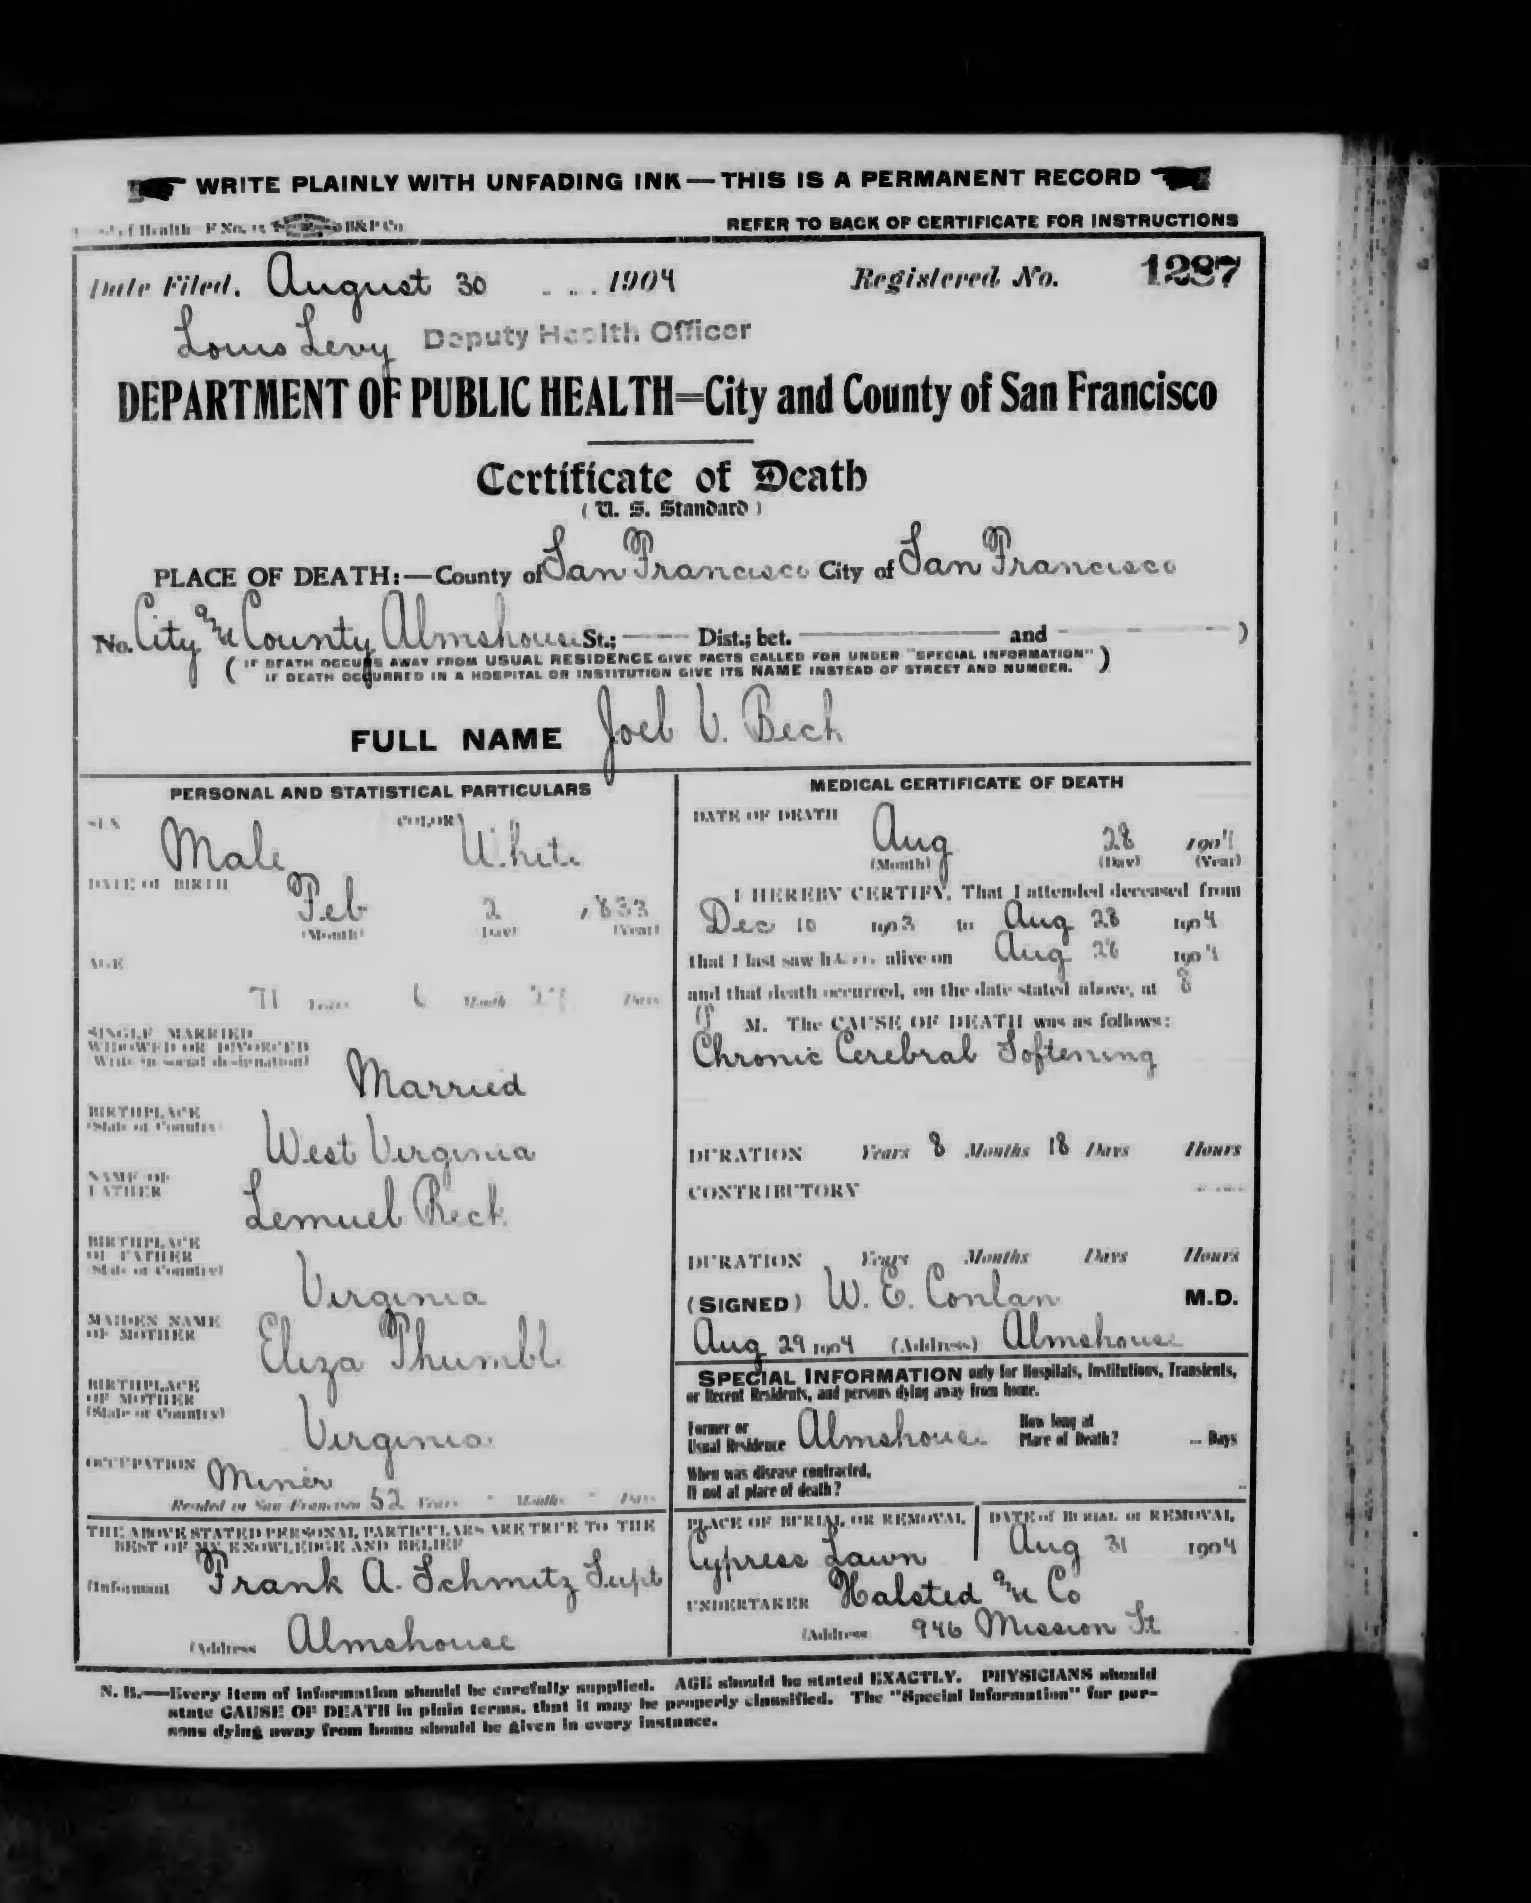 WRITE PLAINLY WITH UNFADING INK — THIS IS A PERMANENT RECORD
of Health F No. 15 B&P Co
REFER TO BACK OF CERTIFICATE FOR INSTRUCTIONS
Date Filed, August 30 1904 Registered No. 1287
Louis Levy Deputy Health Officer
DEPARTMENT OF PUBLIC HEALTH=City and County of San Francisco
Certificate of Death
( U. S. Standard )
PLACE OF DEATH:—County of San Francisco City of San Francisco
No. City and County Almshouse St.; Dist.; bet. and )
( IF DEATH OCCURS AWAY FROM USUAL RESIDENCE GIVE FACTS CALLED FOR UNDER "SPECIAL INFORMATION" )
IF DEATH OCCURRED IN A HOSPITAL OR INSTITUTION GIVE ITS NAME INSTEAD OF STREET AND NUMBER.
FULL NAME Joel V. Beck
PERSONAL AND STATISTICAL PARTICULARS
SEX Male COLOR White
DATE OF BIRTH Feb 2 1833
(Month) (Day) (Year)
AGE
71 Years 6 Months 27 Days
SINGLE MARRIED
WIDOWED OR DIVORCED
Write in social designation)
Married
BIRTHPLACE
(State or Country
West Virginia
NAME OF
FATHER
Lemuel Beck
BIRTHPLACE
OF FATHER
(State or Country)
Virginia
MAIDEN NAME
OF MOTHER
Eliza
BIRTHPLACE
OF MOTHER
(State or Country)
Virginia
OCCUPATION Miner
Resided in San Francisco 52 Years - Months - Days
THE ABOVE STATED PERSONAL PARTICULARS ARE TRUE TO THE
BEST OF MY KNOWLEDGE AND BELIEF
(Informant Frank A. Schmitz Supt
(Address Almshouse
MEDICAL CERTIFICATE OF DEATH
DATE OF DEATH
Aug 28 1904
(Month) (Day) (Year)
I HEREBY CERTIFY, That I attended deceased from
Dec 10 1903 to Aug 28 1904
that I last saw him alive on Aug 28 1904
and that death occurred, on the date stated above, at 8
P M. The CAUSE OF DEATH was as follows:
Chronic Cerebral Softening
DURATION Years 8 Months 18 Days Hours
CONTRIBUTORY
DURATION Years Months Days Hours
(SIGNED) W. E. Conlan M.D.
Aug 29 1904 (Address) Almshouse
SPECIAL INFORMATION only for Hospitals, Institutions, Transients,
or Recent Residents, and persons dying away from home.
Former or
Usual Residence Almshouse
How long at
Place of Death? Days
When was disease contracted,
If not at place of death?
PLACE OF BURIAL OR REMOVAL
Cypress Lawn
DATE of BURIAL or REMOVAL
Aug 31 1904
UNDERTAKER Halsted and Co
(Address 946 Mission St
N. B.—Every item of information should be carefully supplied. AGE should be stated EXACTLY. PHYSICIANS should
state CAUSE OF DEATH in plain terms, that it may be properly classified. The "Special Information" for per-
sons dying away from home should be given in every instance.